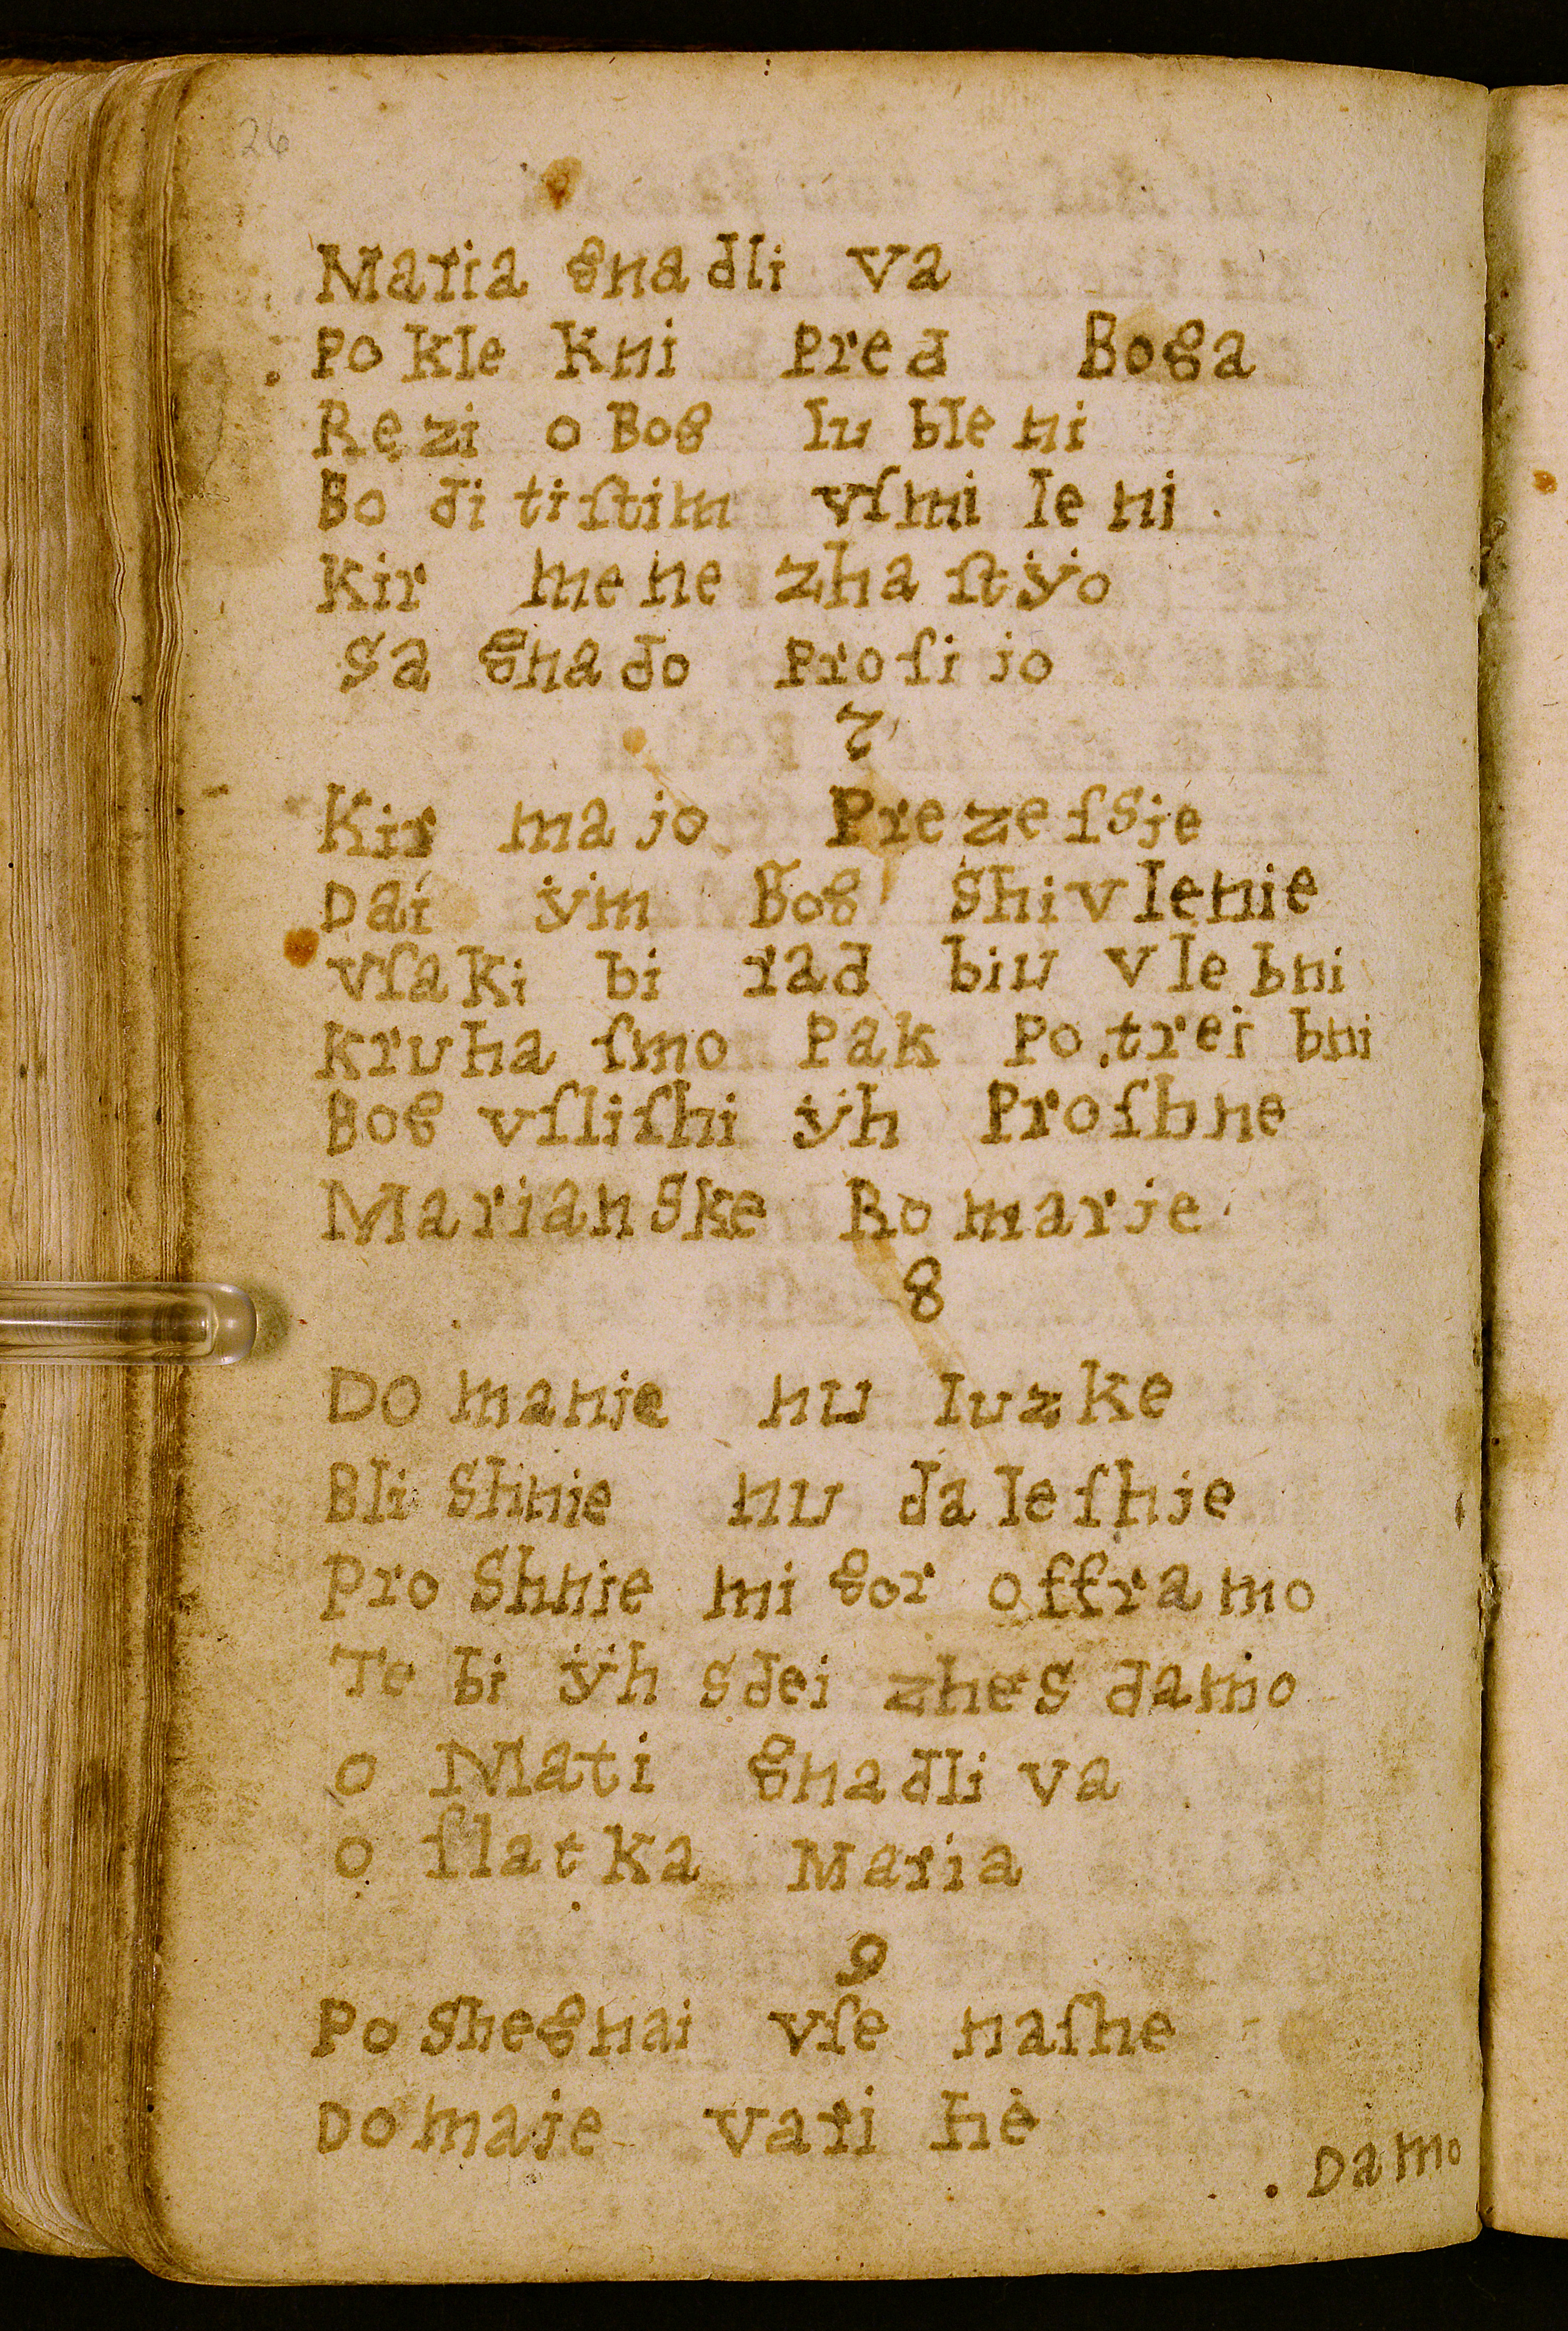 26
Maria gna dli va
Po kle kni pred Boga
Rezi o Bog lu ble ni
Bo di ti ſtim vſmi le ni .
Kir me ne zha ſtÿo
Sa gna do pro ſi jo
7
Kir ma jo Pre ze ſSje
Dai ÿm Bog Shivlenie
vſaki bi rad biu vle bni
kruha ſmo Pak Po trei bni
Bog vſliſhi ÿh Proſhne
MarianSke Ro marje
8
Do manje nu luzke
Bli Shnje nu da le ſhje
Pro Shnje mi gor offra mo
Te bi ÿh sdei zhes damo
o Mati gna dli va
o ſlat ka Maria
9
Po Shegnai vſe naſhe
Do maje vari hè
. Damo